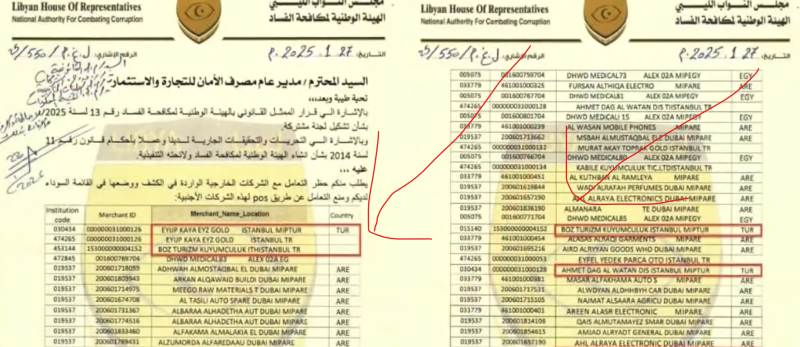 Libyan House of Representatives
National Authority For Combating Corruption
مجلس النواب الليبي
الهيئة الوطنية لمكافحة الفساد
الرقم الإشاري:
التاريخ:
السيد المحترم / مدير عام مصرف الأمان للتجارة والاستثمار
تحية طيبة وبعد،،،
بالإشارة إلى قرار الممثل القانوني بالهيئة الوطنية لمكافحة الفساد رقم 13 لسنة 2025
بشأن تشكيل لجنة مشتركة.
وبالإشارة إلى التحريات والتحقيقات الجارية لدينا وعملا بأحكام قانون رقم 11
لسنة 2014 بشأن انشاء الهيئة الوطنية لمكافحة الفساد ولائحته التنفيذية.
عليه ...
يطلب منكم حظر التعامل مع الشركات الخارجية الواردة في الكشف ووضعها في القائمة السوداء
لديكم ومنع التعامل عن طريق pos لهذه الشركات الأجنبية:
Institution code Merchant ID Merchant_Name_Location Country
030434 000000031000126 EYUP KAYA EYZ GOLD ISTANBUL MIPTUR TUR
474265 000000031000126 EYUP KAYA EYZ GOLD ISTANBUL TR
453144 153000000004152 BOZ TURIZM KUYUMCULUK ITHISTANBUL TR
472845 001600769704 DHWD MEDICAL83 ALEX 02A EG
019537 200601718059 ADHWAH ALMOSTAQBAL EL DUBAI MIPARE ARE
019537 200601803943 ARKAN ALQAWAID BUILDI DUBAI MIPARE ARE
019537 200601714975 MEEGO RAW MATERIALS T DUBAI MIPARE ARE
019537 200601674708 AL TASILI AUTO SPARE DUBAI MIPARE ARE
019537 200601731367 ALBARAA ALHADETHA AUT DUBAI MIPARE ARE
019537 200601774516 ALBARAA ALHADETHA AUT DUBAI MIPARE ARE
019537 200601833460 ALFAKAMA ALMALAKIA EL DUBAI MIPARE ARE
019537 200601789431 ALZUMORDA ALFAREDAAU DUBAI MIPARE ARE
Libyan House of Representatives
National Authority For Combating Corruption
مجلس النواب الليبي
الهيئة الوطنية لمكافحة الفساد
الرقم الإشاري:
التاريخ:
005075 001600759704 DHWD MEDICAL73 ALEX 02A MIPEGY EGY
033779 461001000325 FURSAN ALTHIQA ELECTRO MIPARE ARE
005075 001600767704 DHWD MEDICAL81 ALEX 02A MIPEGY EGY
474265 000000031000128 AHMET DAG AL WATAN DIS TIISTANBUL TR
005075 001600801704 ALEX 02A MIPEGY EGY
033779 461001000239 AL WASAN MOBILE PHONES MIPARE ARE
019537 200601713662 MSBAH ALMUSTAQBAL ELE DUBAI MIPARE ARE
MURAT AKAY TOPRAK GOLD ISTANBUL TR
005075 001600766704 DHWD MEDICAL80 ALEX 02A MIPEGY EGY
KABILE KUYUMCULUK TIC.LTDISTANBUL TR
033779 461001000451 AL KUTHBAN AL RAMLEYA MIPARE ARE
019537 200601618844 WADI ALRAFAH PERFUMES DUBAI MIPARE ARE
019537 200601657190 AHL ALRAYA ELECTRONICS DUBAI MIPARE ARE
019537 200601836190 ALMANARA TE DUBAI MIPARE ARE
005075 001600771704 DHWD MEDICAL85 ALEX 02A MIPEGY EGY
015140 153000000004152 BOZ TURIZM KUYUMCULUK ISTANBUL MIPTUR TUR
033779 461001000454 ALASAS ALRAQI GARMENTS MIPARE ARE
019537 200601695216 AIRD ALRIYYAN GOODS WHO DUBAI MIPARE ARE
474265 000000031000053 EYFEL YEDEK PARCA OTO ISTANBUL TR
030434 000000031000128 AHMET DAG AL WATAN DIS ISTANBUL MIPTUR TUR
033779 MASAR ALFAKHAMA AUTO S MIPARE ARE
019537 200601717531 ALWDYAN ALDHHBYH CAR DUBAI MIPARE ARE
019537 200601715105 NAIMAT ALSAARA AGRICU DUBAI MIPARE ARE
033779 461001000401 AREEN ALASR ELECTRONIC MIPARE ARE
019537 200601814106 QAIS ALMUTAMAYEZ SMAR DUBAI MIPARE ARE
019537 200601854615 AMJAD ALRYADT GENERAL DUBAI MIPARE ARE
019537 200601657190 AHL ALRAYA ELECTRONIC DUBAI MIPARE ARE